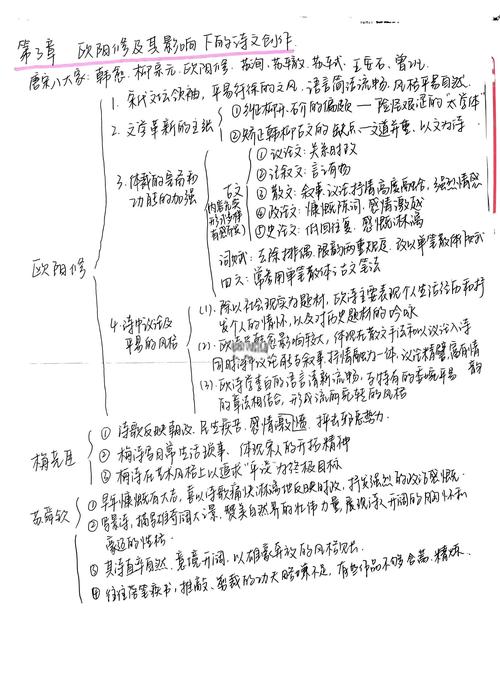 第3章 欧阳修及其影响下的诗文创作
唐宋八大家：韩愈、柳宗元、欧阳修、苏洵、苏轼、苏辙、王安石、曾巩
欧阳修
1. 宋代文坛领袖，平易纡徐的文风，语言简洁流畅，风格平易自然
2. 文学革新的主张
①纠正柳开、石介的偏颇——险怪艰涩的"太学体"
②矫正韩柳古文的缺点—文道并重，以文为诗
3. 体裁的完备和功能的加强
古文
①议论文：关系时政
②记叙文：言之有物
③散文：叙事议论抒情高度融合，强烈情感
④政论文：慷慨陈词，感情激越
⑤史论文：低回往复，感慨淋漓
词赋：去除排偶、限韵两重规定，改以单笔散体作赋
四六：常参用单笔散体之古文笔法
4. 诗中议论及平易的风格
(1). 除以社会现实为题材，欧诗主要表现个人生活经历和抒发个人的情怀，以及对历史题材的吟咏
(2). 欧诗受韩愈影响较大，体现在散文手法和以议论入诗
同时诗中议论能与叙事、抒情融为一体，议论精警富有情韵
(3). 欧诗学李白的语言清新流畅，与特有的委婉平易的章法相结合，形成流丽宛转的风格
梅尧臣
①诗歌反映朝政、民生疾苦，感情激愤，抨击邪恶势力
②梅诗写日常生活琐事，体现宋人的开拓精神
③梅诗在艺术风格上以追求"平淡"为终极目标
苏舜钦
①早年慷慨有大志，喜以诗歌痛快淋漓地反映时政，抒发强烈的政治感慨
②写景诗，描写雄奇阔大之景，赞美自然界的壮伟力量，展现诗人开阔的胸怀和
豪迈的性格
③其诗直率自然，意境开阔，以雄豪奔放的风格见长
④往往落笔疾书，推敲、剪裁的功夫略嫌不足，有些作品不够含蓄、精炼